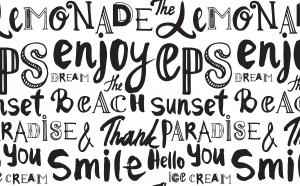 LEMONADE The LEMON
EPS enjoy EPS enjoy
DREAM The DREAM
sunset BEACH sunset BEACH
PARADISE & Thank PARADISE &
you Smile Hello you Smile
ice CREAM The ice CREAM